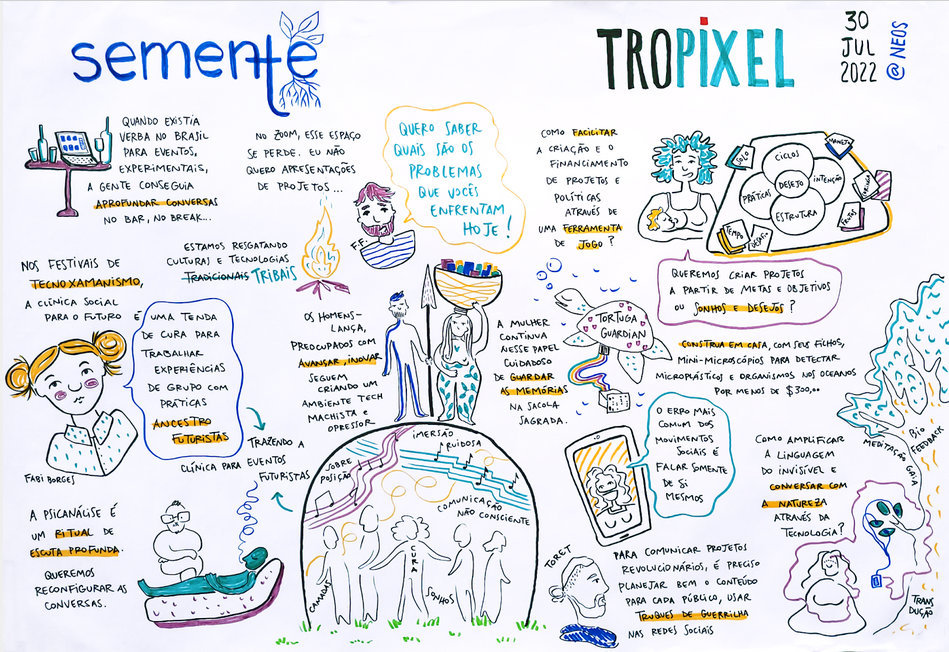 semente
TROPiXEL
30
JUL
2022
@NEOS
QUANDO EXISTIA
VERBA NO BRASIL
PARA EVENTOS,
EXPERIMENTAIS,
A GENTE CONSEGUIA
APROFUNDAR CONVERSAS
NO BAR, NO BREAK...
NO ZOOM, ESSE ESPAÇO
SE PERDE. EU NÃO
QUERO APRESENTAÇÕES
DE PROJETOS...
F.F.
QUERO SABER
QUAIS SÃO OS
PROBLEMAS
QUE VOCÊS
ENFRENTAM
HOJE!
COMO FACILITAR
A CRIAÇÃO E O
FINANCIAMENTO
DE PROJETOS E
POLÍTICAS
ATRAVÉS DE
UMA FERRAMENTA
DE JOGO?
SOLO
MANEJO
CICLOS
PRÁTICAS
DESEJO
INTENÇÃO
ESTRUTURA
TEMPO
FRUTAS
QUEREMOS CRIAR PROJETOS
A PARTIR DE METAS E OBJETIVOS
OU SONHOS E DESEJOS?
ESTAMOS RESGATANDO
CULTURAS E TECNOLOGIAS
TRADICIONAIS TRIBAIS
NOS FESTIVAIS DE
TECNOXAMANISMO,
A CLÍNICA SOCIAL
PARA O FUTURO É
UMA TENDA
DE CURA PARA
TRABALHAR
EXPERIÊNCIAS
DE GRUPO COM
PRÁTICAS
ANCESTRO
FUTURISTAS
FABI BORGES
TRAZENDO A
CLÍNICA PARA EVENTOS
FUTURISTAS
OS HOMENS-
LANÇA,
PREOCUPADOS COM
AVANÇAR, INOVAR
SEGUEM
CRIANDO UM
AMBIENTE TECH
MACHISTA E
OPRESSOR
A MULHER
CONTINUA
NESSE PAPEL
CUIDADOSO
DE GUARDAR
AS MEMÓRIAS
NA SACOLA
SAGRADA.
TORTUGA
GUARDIAN
CONSTRUA EM CASA, COM SEUS FILHOS,
MINI-MICROSCÓPIOS PARA DETECTAR
MICROPLÁSTICOS E ORGANISMOS NOS OCEANOS
POR MENOS DE $300,00
O ERRO MAIS
COMUM DOS
MOVIMENTOS
SOCIAIS É
FALAR SOMENTE
DE SI
MESMOS
COMO AMPLIFICAR
A LINGUAGEM
DO INVISÍVEL E
CONVERSAR COM
A NATUREZA
ATRAVÉS DA
TECNOLOGIA?
MEDITAÇÃO GAIA
BIO
FEEDBACK
TRANS
DUÇÃO
A PSICANÁLISE É
UM RITUAL DE
ESCUTA PROFUNDA.
QUEREMOS
RECONFIGURAR AS
CONVERSAS.
SOBRE
POSIÇÃO
IMERSÃO
RUIDOSA
COMUNICAÇÃO
NÃO CONSCIENTE
CAMADAS
CURA
SONHOS
TORET
PARA COMUNICAR PROJETOS
REVOLUCIONÁRIOS, É PRECISO
PLANEJAR BEM O CONTEÚDO
PARA CADA PÚBLICO, USAR
TRUQUES DE GUERRILHA
NAS REDES SOCIAIS